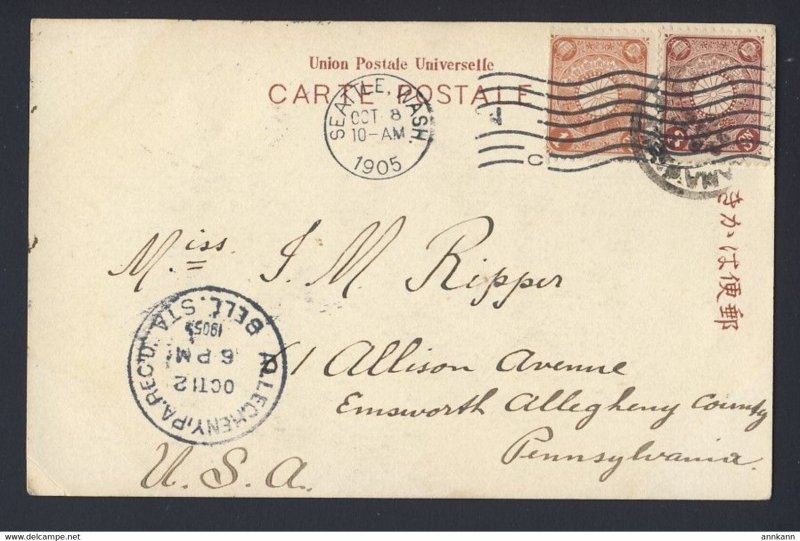 Union Postale Universelle
CARTE POSTALE
SEATTLE, WASH.
OCT 8
10-AM
1905
C
郵便はかき
Miss. J. M. Ripper
61 Allison Avenue
Emsworth Allegheny County
Pennsylvania.
U.S.A.
ALLEGHENY, PA. REC'D.
OCT 12
6 PM
1905
BELL. STA
www.hippostcard.com
annkann